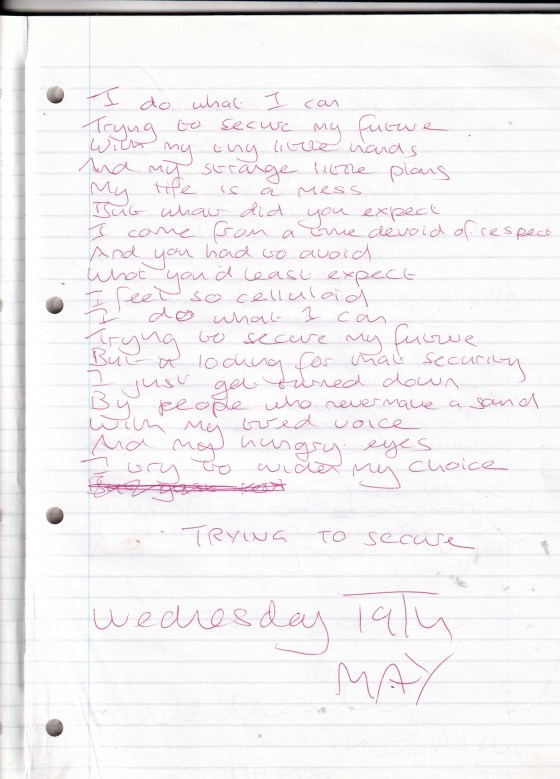 I do what I can
Trying to secure my future
With my tiny little hands
And my strange little plans
My life is a mess
But what did you expect
I come from a time devoid of respect
And you had to avoid
What you'd least expect
I feel so celluloid
I do what I can
Trying to secure my future
But a looking for that security
I just get turned down
By people who never make a sound
With my tired voice
And my hungry eyes
I try to widen my choice
TRYING TO SECURE
Wednesday 19th
MAY